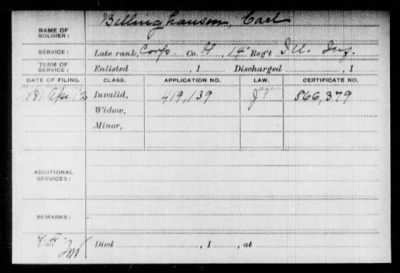 NAME OF SOLDIER: Billinghausen, Carl
SERVICE: Late rank, Corp Co. H, 14" Reg't Ill. Inf.
TERM OF SERVICE: Enlisted , 1 Discharged , 1
DATE OF FILING. CLASS. APPLICATION NO. LAW. CERTIFICATE NO.
Invalid, 419,139 866,379
Widow,
Minor,
ADDITIONAL SERVICES:
REMARKS:
Died , 1 , at